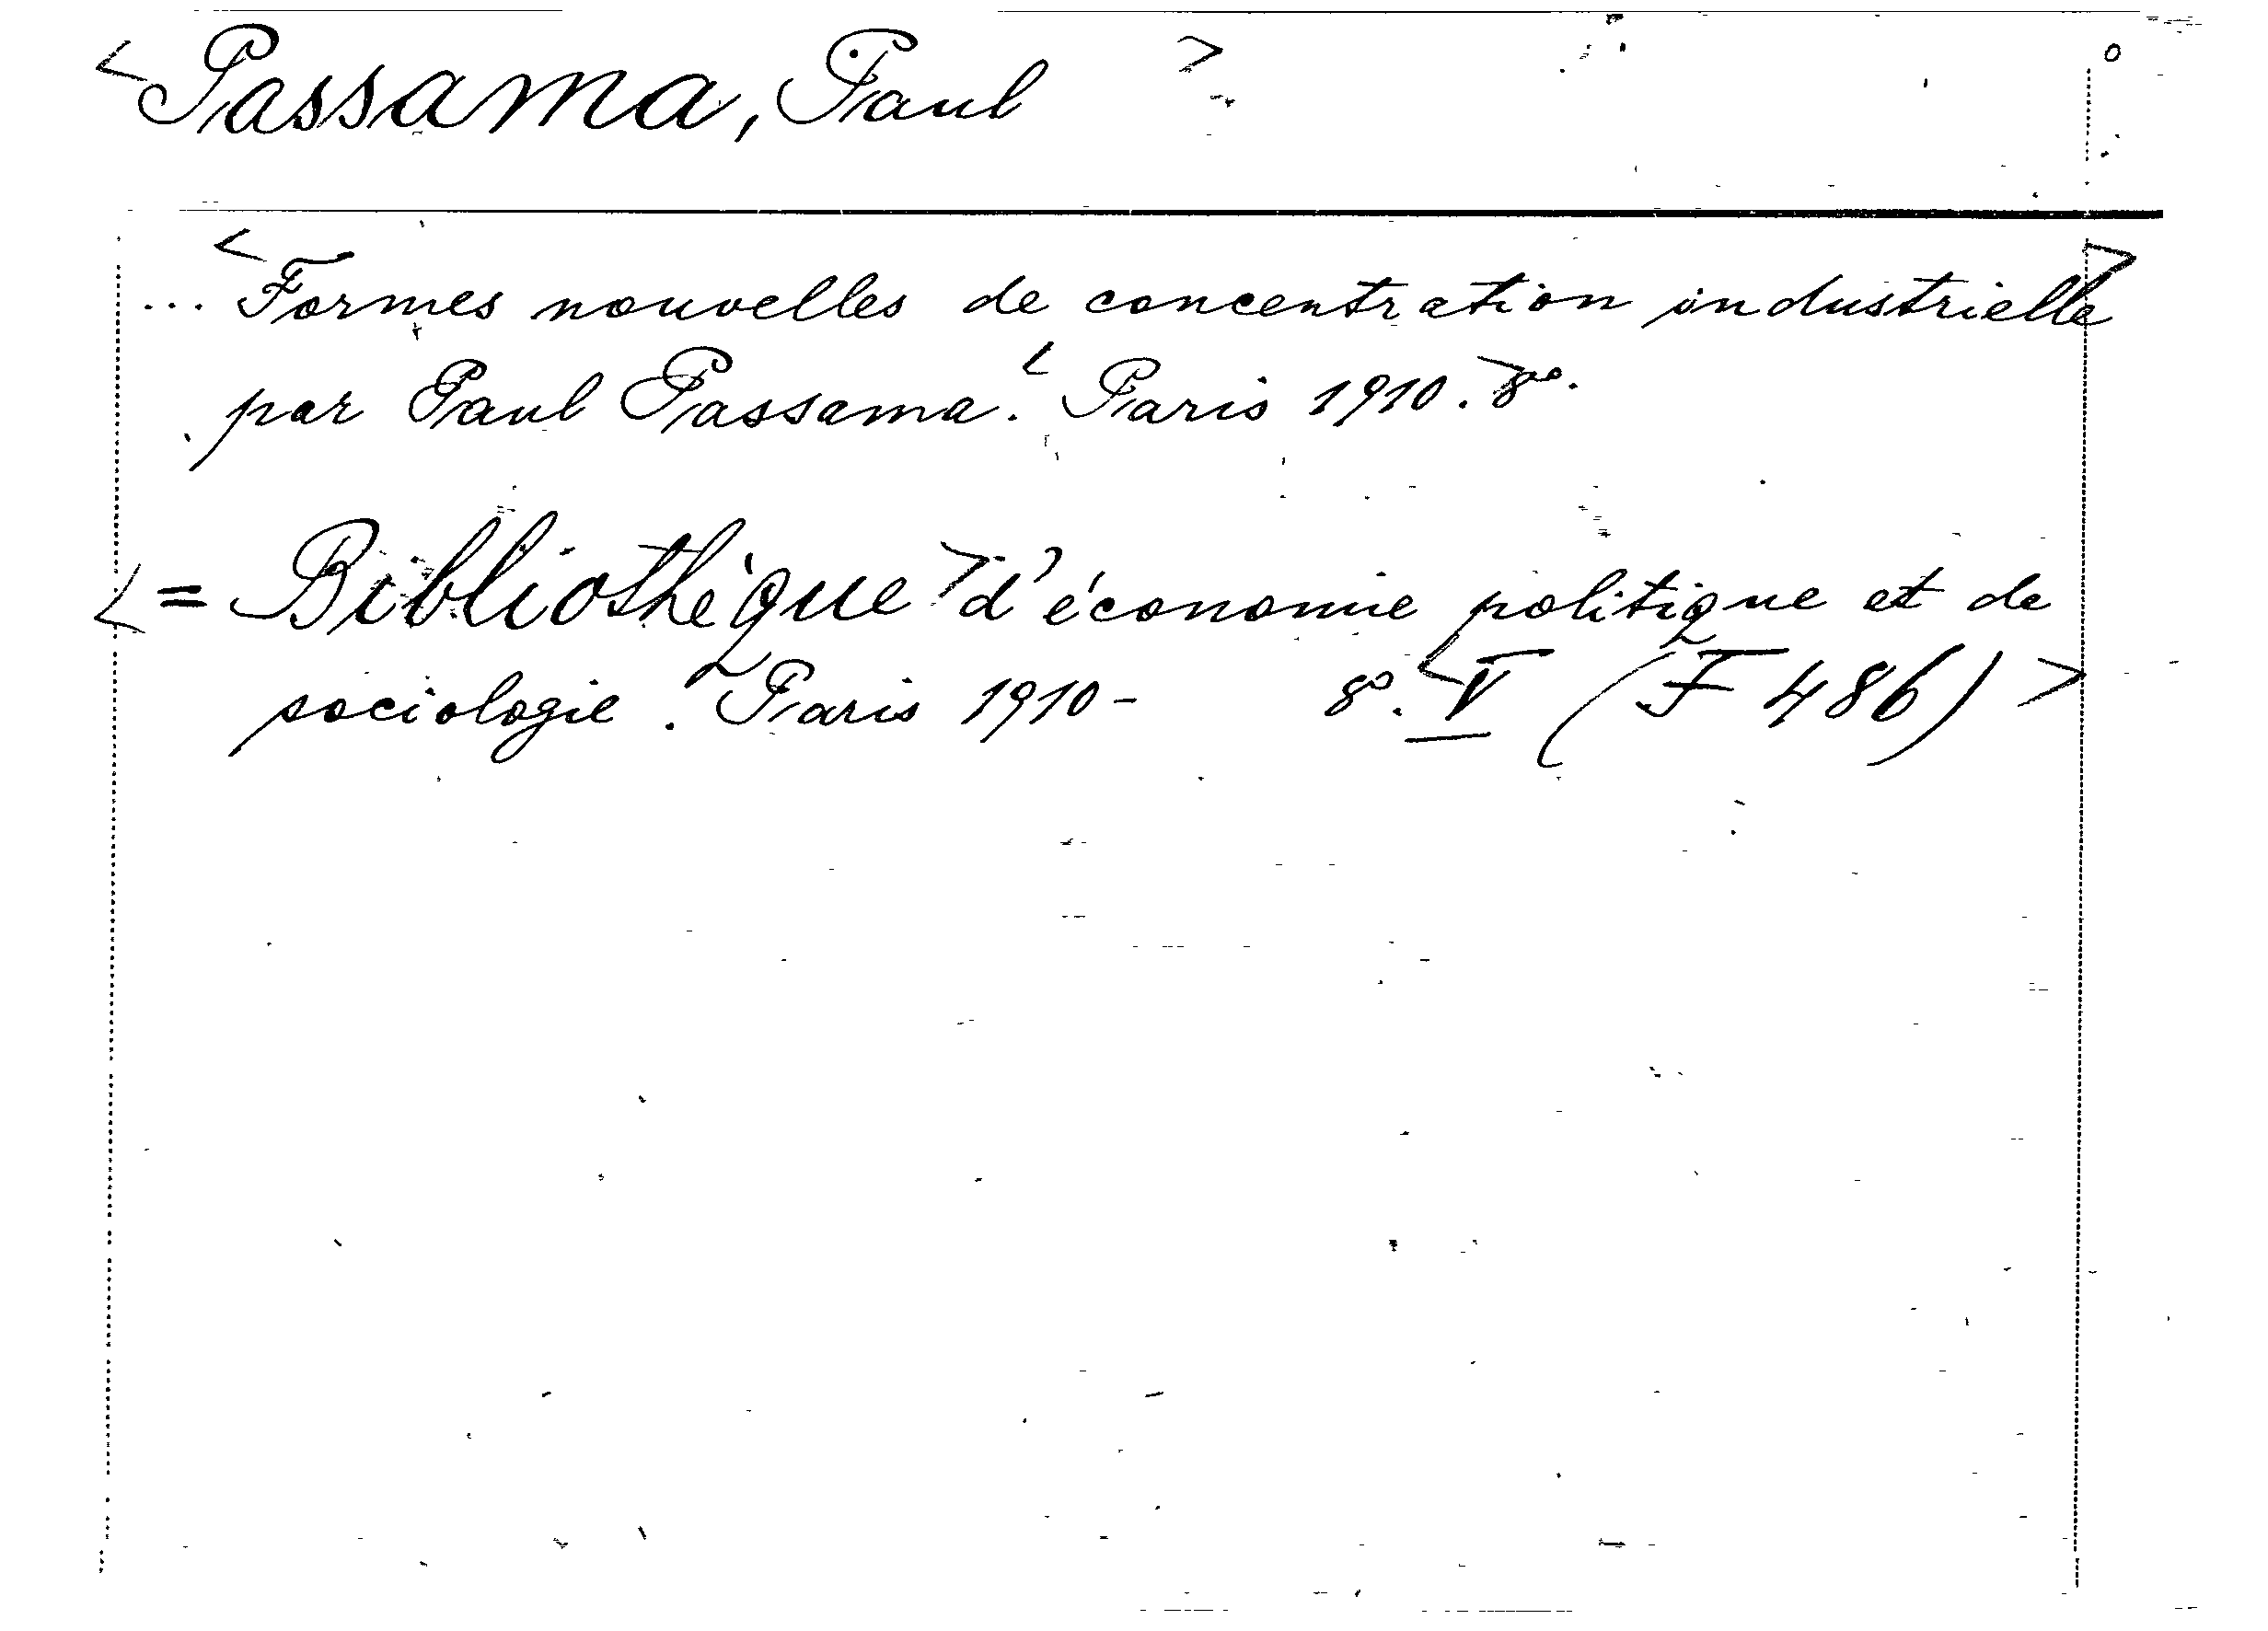 <Passama, Paul>
... <Formes nouvelles de concentration industrielle>
par Paul Passama. <Paris 1910.> 8º.
<= Bibliothèque> d'économie politique et de
sociologie. Paris 1910- 8º. <V (F 486)>